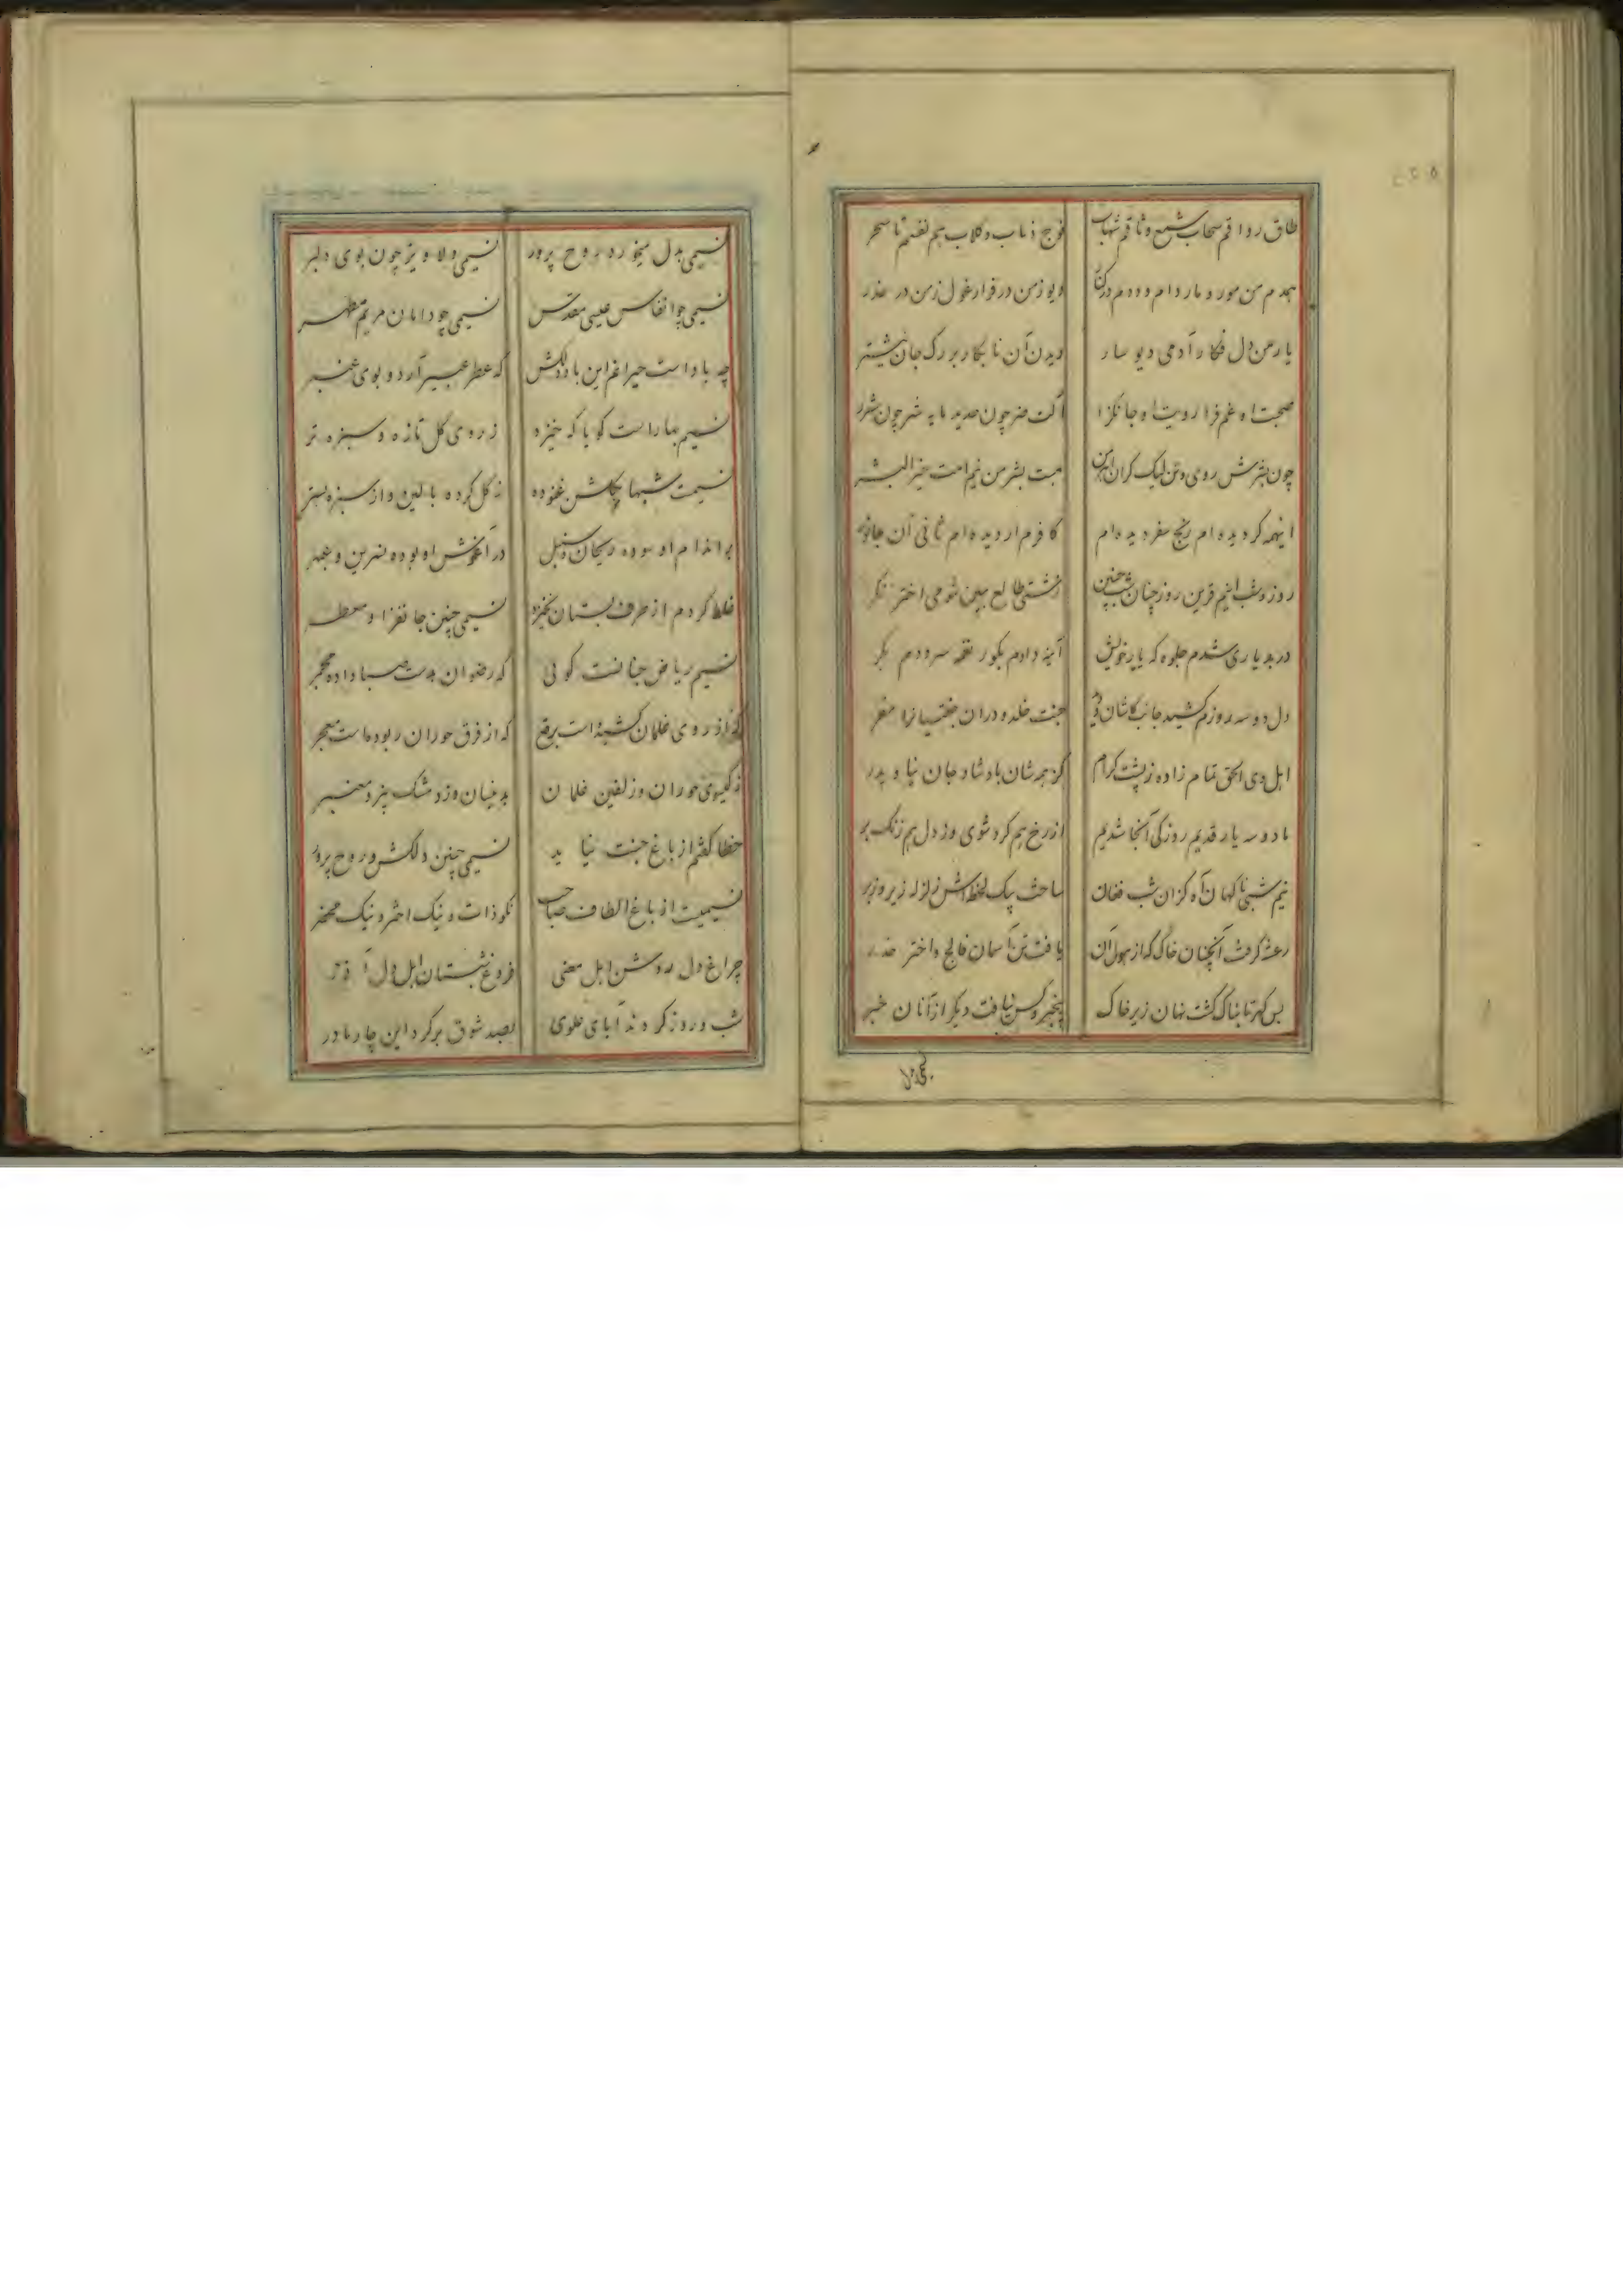 طاق رواقم سحاب شمع وثاقم شهاب فوج ذئاب و کلاب هم نفسم تا سحر
همدم من مور و مار دام و ددم در کنار دیو ز من در فرار غول ز من در حذر
یار من دل فکار آدمی دیو سار دیدن آن نابکار بر رگ جان نیشتر
صحبت او غم فزا رویت او جانگزا آلت ضر چون حدید مایه شر چون شرر
چون بشرش روی و تن لیک گر آن این بشر من نیم امت خیر البشر
اینهمه گردیده ام رنج سفر دیده ام کافرم ار دیده ام ثانی آن جانور
روز و شب اینم قرین روز چنان شب چنین زشتی طالع ببین شومی اختر نگر
در بد یاری شدم جلوه گه یار خویش آینه دادم بکور نغمه سرودم بکر
دل دو سه روزم کشید جانب کاشان و جنت خلد و در آن جنتیان را مقر
اهل وی الحق تمام زاده ز پشت کرام کز همه شان باد شاد جان نیا و پدر
با دو سه یار قدیم روزگی آنجا شدیم از رخ هم گرد شوی وز دل هم زنگ بر
نیم شبی ناگهان آه کزان شب فغان ساخت بیک لحظه اش زلزله زیر و زبر
رعشه گرفت آنچنان خاک که از هول آن یافت تن آسمان فالج و اختر خدر
بس گهر تابناک گشت نهان زیر خاک بیخبر و کس نیافت دیگر از آنان خبر
نسیمی بدل میخورد روح پرور نسیمی دلاویز چون بوی دلبر
نسیمی چو انفاس عیسی مقدس نسیمی چو دامان مریم مطهر
چه باد است حیرانم این باد دلکش که عطر عبیر آرد و بوی عنبر
نسیم بهار است گویا که خیزد ز روی گل تازه و سبزه تر
نسیمت شبها بگلشن غنوده ز گل کرده بالین و از سبزه بستر
بر اندام او سوده ریحان و سنبل در آغوش او بوده نسرین و عبهر
غلط کردم از طرف بستان نخیزد نسیمی چنین جانفزا و معطر
نسیم ریاض جنانست گوئی که رضوان بدست صبا داده مجمر
که از روی غلمان کشیده است برقع که از فرق حوران ربوده است معجر
ز گیسوی حوران وز زلفین غلمان بدینسان وزد مشک بیز و معنبر
خطا گفتم از باغ جنت نیاید نسیمی چنین دلکش و روح پرور
نسیمیست از باغ الطاف صاحب نکو ذات و نیک اختر و نیک محضر
چراغ دل روشن اهل معنی فروغ شبستان اهل دل آذر
شب و روز گردند آبای علوی بصد شوق بر گرد این چار مادر